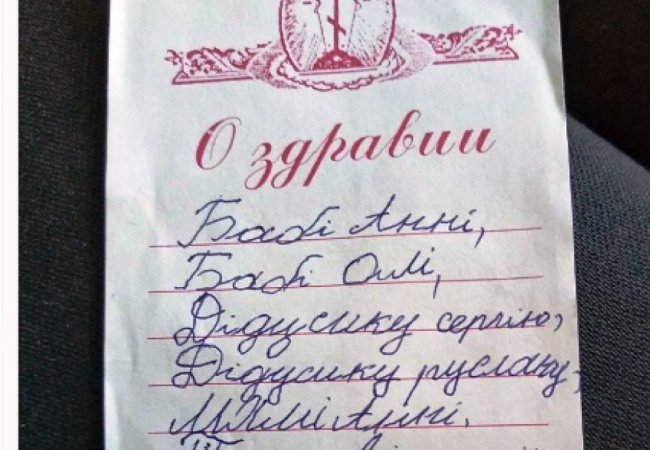 О здравии
Бабі Анні,
Бабі Олі,
Дідусику сергію,
Дідусику руслану,
МАМі Анні,